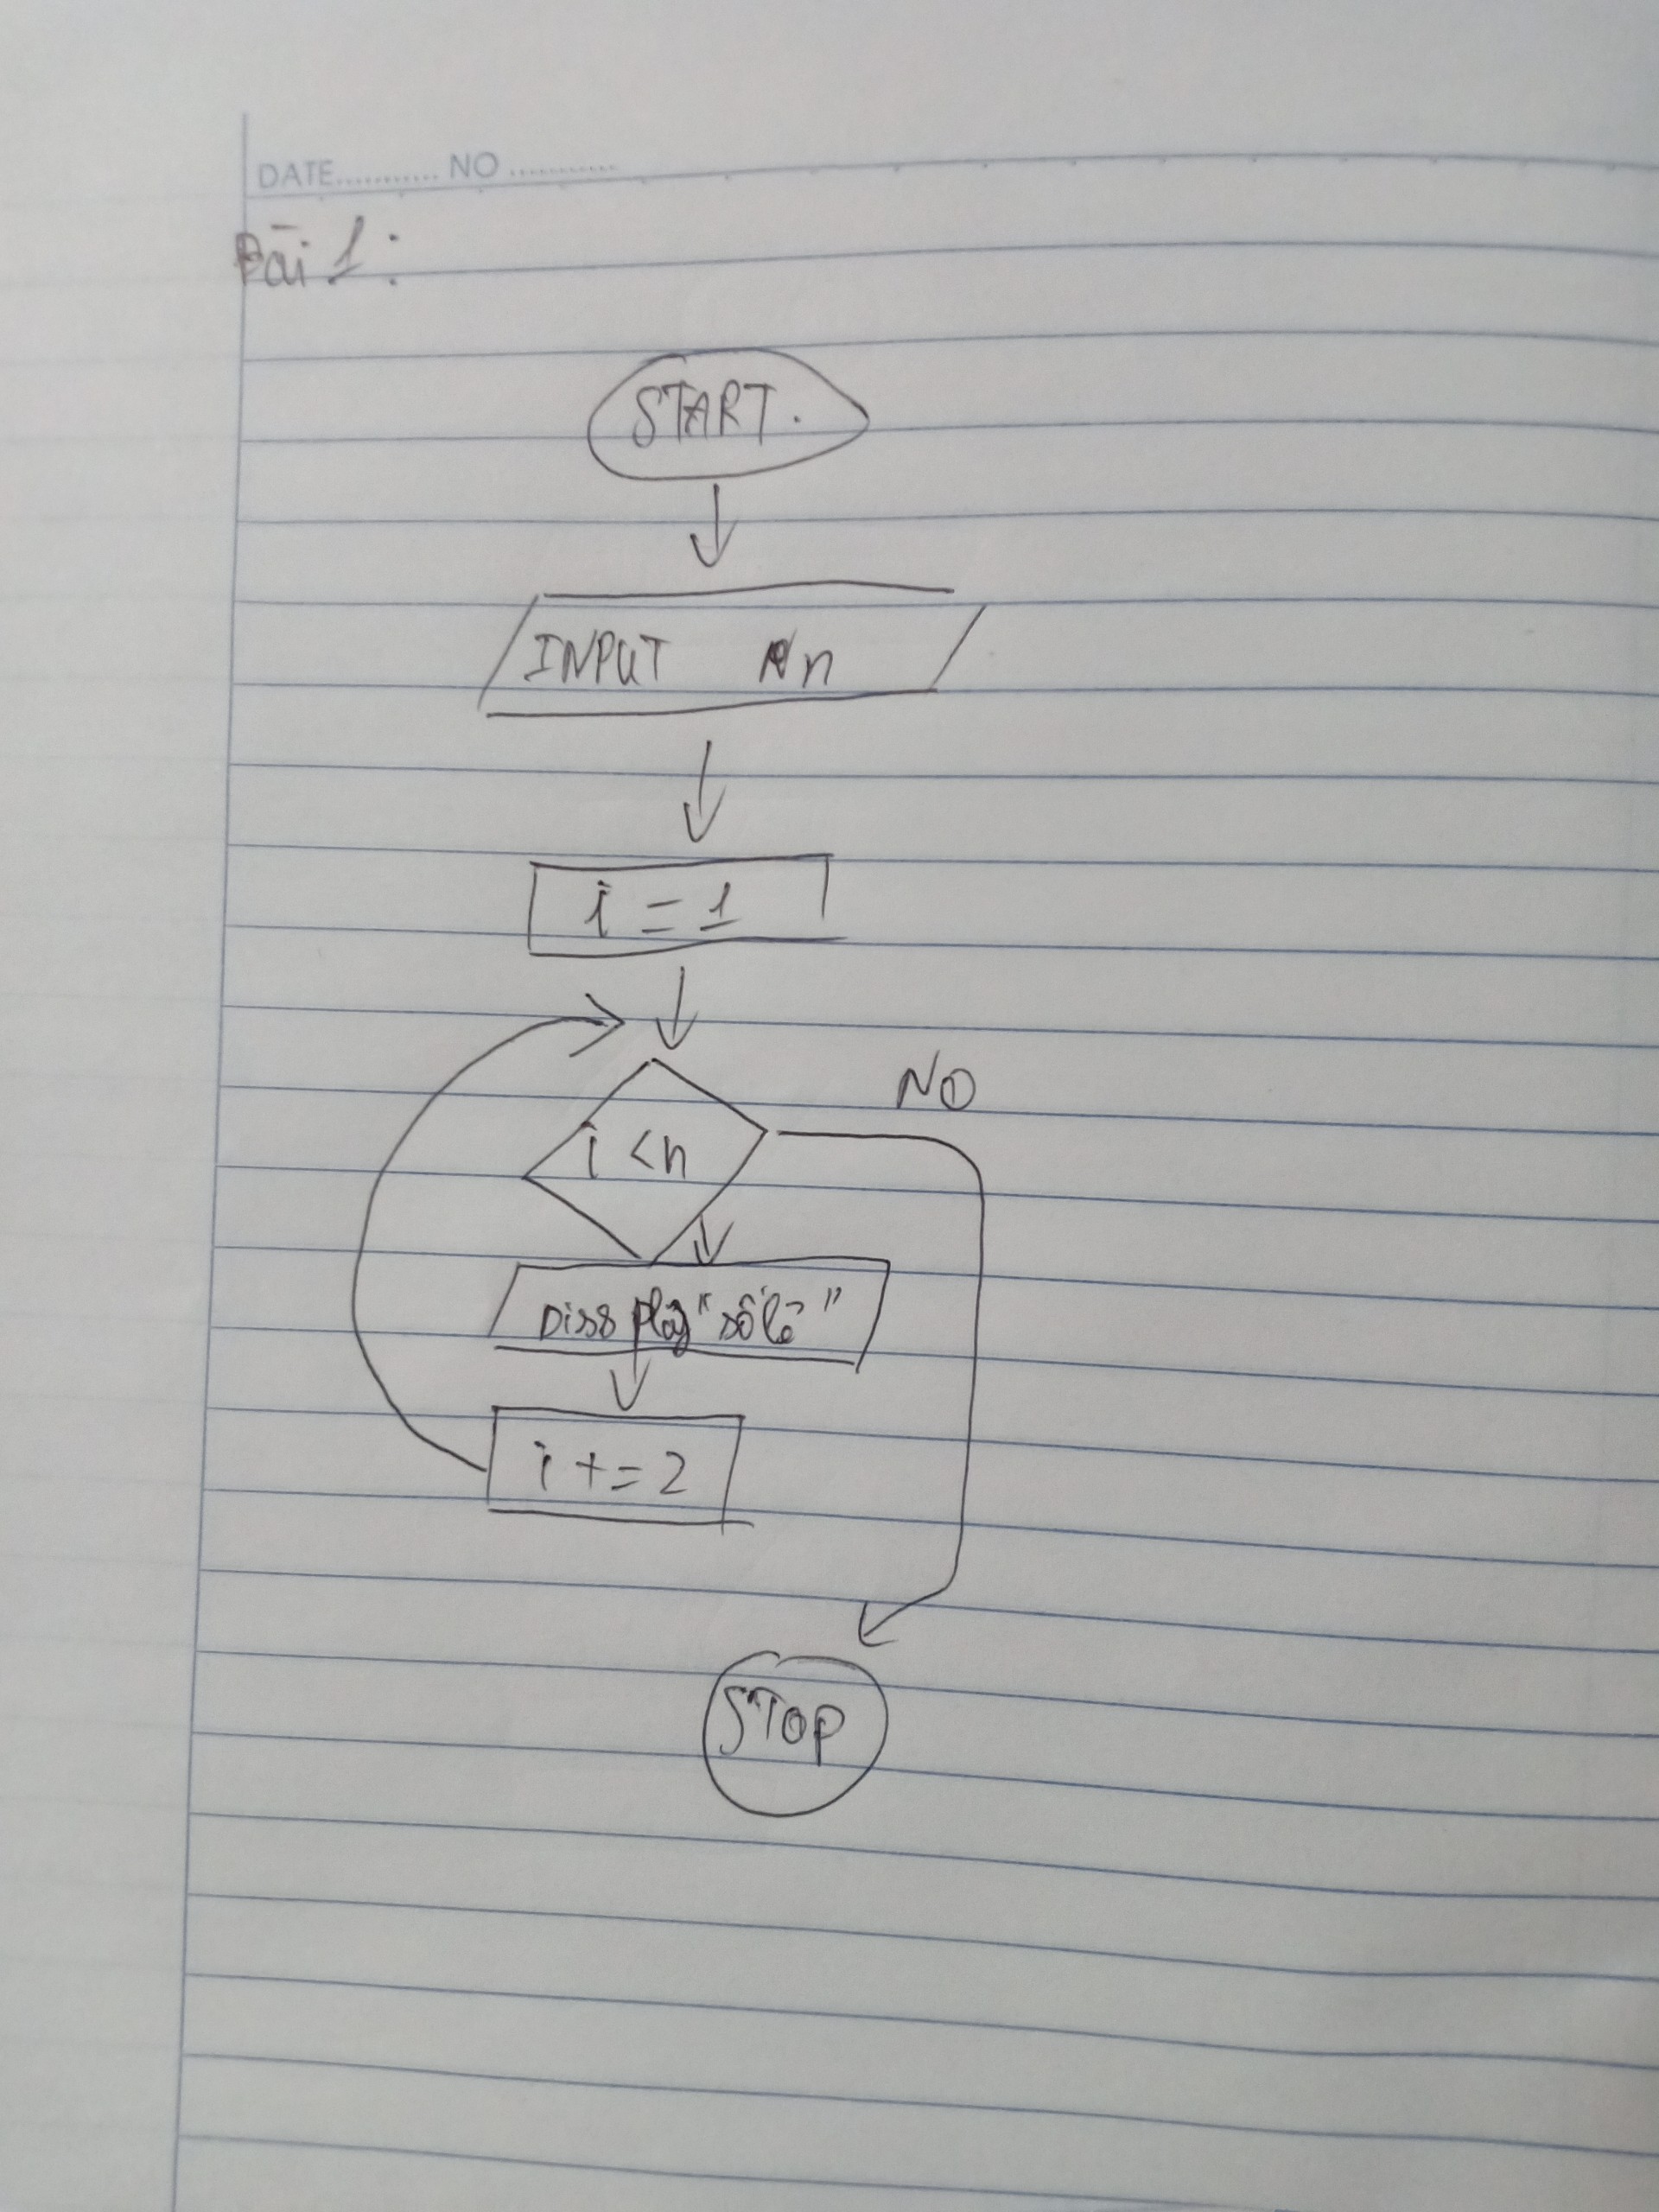 DATE........... NO ............
Bài 1:
START.
INPUT n
i = 1
NO
i < n
Display "số lẻ"
i += 2
STOP